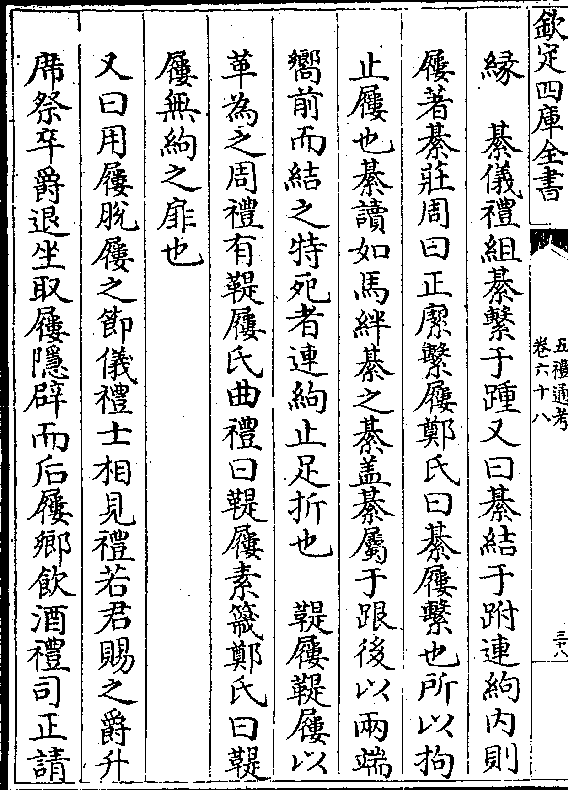 欽定四庫全書
五禮通考
卷六十八
三十八
緣　綦儀禮組綦繫于踵又曰綦結于跗連絇内則
屨著綦莊周曰正緳繫屨鄭氏曰綦屨繫也所以拘
止屨也綦讀如馬絆綦之綦盖綦屬于跟後以兩端
嚮前而結之特死者連絇止足折也　鞮屨鞮屨以
革為之周禮有鞮屨氏曲禮曰鞮屨素簚鄭氏曰鞮
屨無絇之扉也
又曰用屨脫屨之節儀禮士相見禮若君賜之爵升
席祭卒爵退坐取屨隱辟而后屨鄉飲酒禮司正請